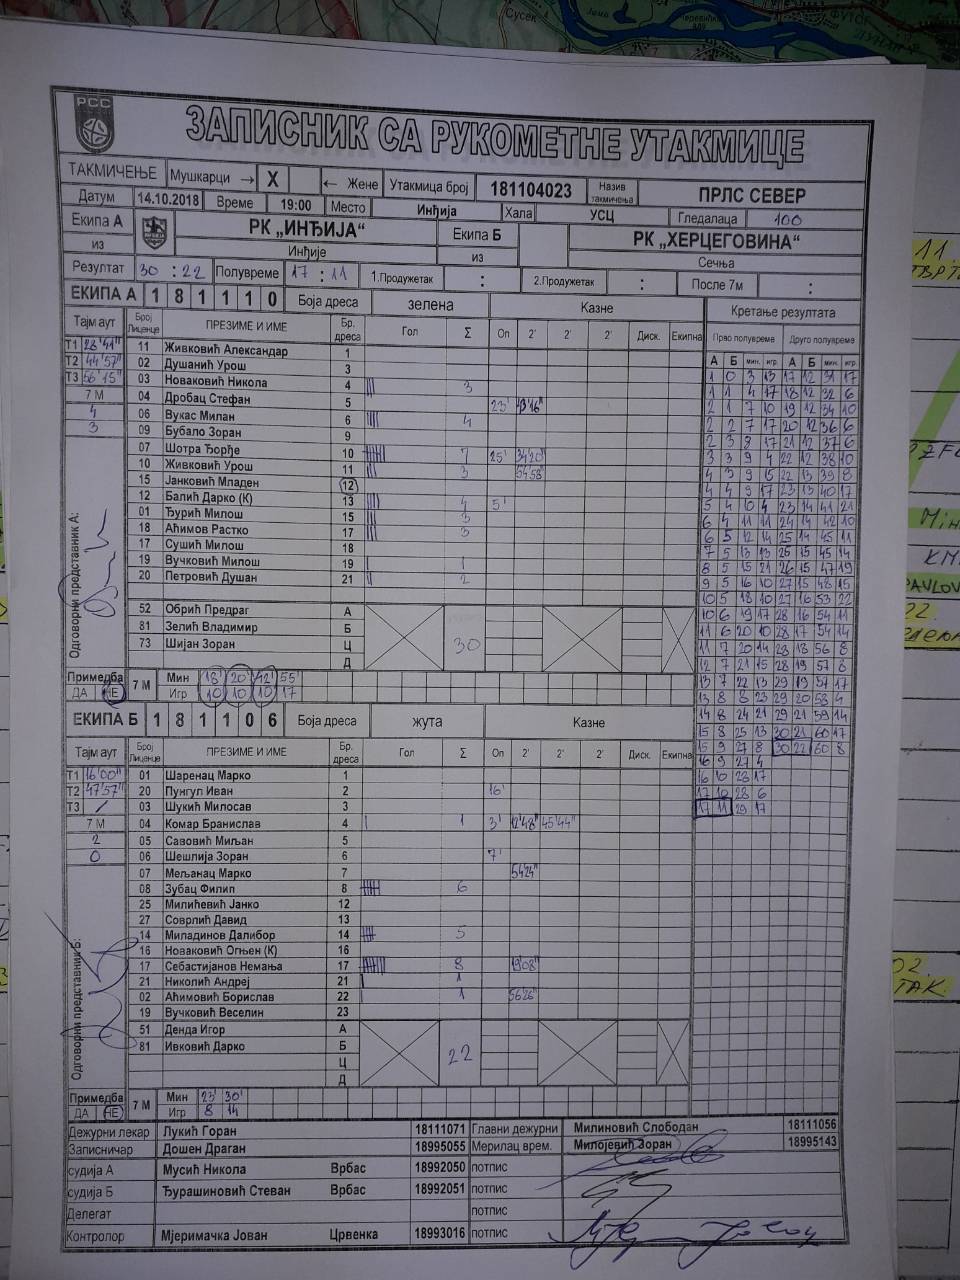 РСС
ЗАПИСНИК СА РУКОМЕТНЕ УТАКМИЦЕ
ТАКМИЧЕЊЕ Мушкарци → X ← Жене Утакмица број 181104023 Назив такмичења ПРЛС СЕВЕР
Датум 14.10.2018 Време 19:00 Место Инђија Хала УСЦ Гледалаца 100
Екипа А РК „ИНЂИЈА“ Екипа Б РК „ХЕРЦЕГОВИНА“
из Инђије из Сечња
Резултат 30 : 22 Полувреме 17 : 11 1.Продужетак : 2.Продужетак : После 7м :
ЕКИПА А 1 8 1 1 1 0 Боја дреса зелена Казне Кретање резултата
Тајм аут Број Лиценце ПРЕЗИМЕ И ИМЕ Бр. дреса Гол Σ Оп 2' 2' 2' Диск. Екипна Прво полувреме Друго полувреме
А Б мин. игр. А Б мин. игр.
Т1 28'41" 11 Живковић Александар 1
Т2 44'57" 02 Душанић Урош 3
Т3 56'15" 03 Новаковић Никола 4 3
7 М 04 Дробац Стефан 5 23'
4 06 Вукас Милан 6 4
3 09 Бубало Зоран 9
07 Шотра Ђорђе 10 7 25' 34'20"
10 Живковић Урош 11 3 54'58"
15 Јанковић Младен 12
12 Балић Дарко (К) 13 4 5'
01 Ђурић Милош 15 3
18 Аћимов Растко 17 3
17 Сушић Милош 18
19 Вучковић Милош 19 1
20 Петровић Душан 21 2
52 Обрић Предраг А
81 Зелић Владимир Б 30
73 Шијан Зоран Ц
Д
Одговорни представник А:
Примедба ДА НЕ 7 М Мин 18' 20' 42' 55'
Игр 10 10 10 17
1 0 3 13 17 12 31 17
1 1 4 17 18 12 32 6
2 1 7 10 19 12 34 10
2 2 7 17 20 12 36 6
2 3 8 17 21 12 37 6
3 3 9 4 22 12 38 10
4 3 9 15 22 13 39 8
4 4 9 17 23 13 40 17
5 4 10 4 23 14 41 21
6 4 11 11 24 14 42 10
6 5 12 14 25 14 45 11
7 5 13 13 26 15 45 14
8 5 15 21 26 15 47 19
9 5 16 10 27 15 48 15
10 5 18 10 27 16 53 22
10 6 19 17 28 16 54 11
11 6 20 10 28 17 54 14
11 7 20 14 28 18 56 8
12 7 21 15 28 19 57 8
13 7 22 13 29 19 57 17
13 8 23 29 20 58 4
14 8 24 21 29 21 59 14
15 8 25 13 30 21 60 17
15 9 27 8 30 22 60 8
16 9 27 4
16 10 28 17
17 10 28 6
17 11 29 17
ЕКИПА Б 1 8 1 1 0 6 Боја дреса жута Казне
Тајм аут Број Лиценце ПРЕЗИМЕ И ИМЕ Бр. дреса Гол Σ Оп 2' 2' 2' Диск. Екипна
Т1 16'00" 01 Шаренац Марко 1
Т2 47'57" 20 Пунгул Иван 2 16'
Т3 / 03 Шукић Милосав 3
7 М 04 Комар Бранислав 4 1 3' 12'48" 45'44"
2 05 Савовић Миљан 5
0 06 Шешлија Зоран 6 7'
07 Мељанац Марко 7 54'24"
08 Зубац Филип 8 6
25 Милићевић Јанко 12
27 Соврлић Давид 13
14 Миладинов Далибор 14 5
16 Новаковић Огњен (К) 16
17 Себастијанов Немања 17 8 19'08"
21 Николић Андреј 21 1
02 Аћимовић Борислав 22 1 56'26"
19 Вучковић Веселин 23
51 Денда Игор А
81 Ивковић Дарко Б 22
Ц
Д
Одговорни представник Б:
Примедба ДА НЕ 7 М Мин 23' 30'
Игр 8 14
Дежурни лекар Лукић Горан 18111071 Главни дежурни Милиновић Слободан 18111056
Записничар Дошен Драган 18995055 Мерилац врем. Милојевић Зоран 18995143
судија А Мусић Никола Врбас 18992050 потпис
судија Б Ђурашиновић Стеван Врбас 18992051 потпис
Делегат потпис
Контролор Мјеримачка Јован Црвенка 18993016 потпис